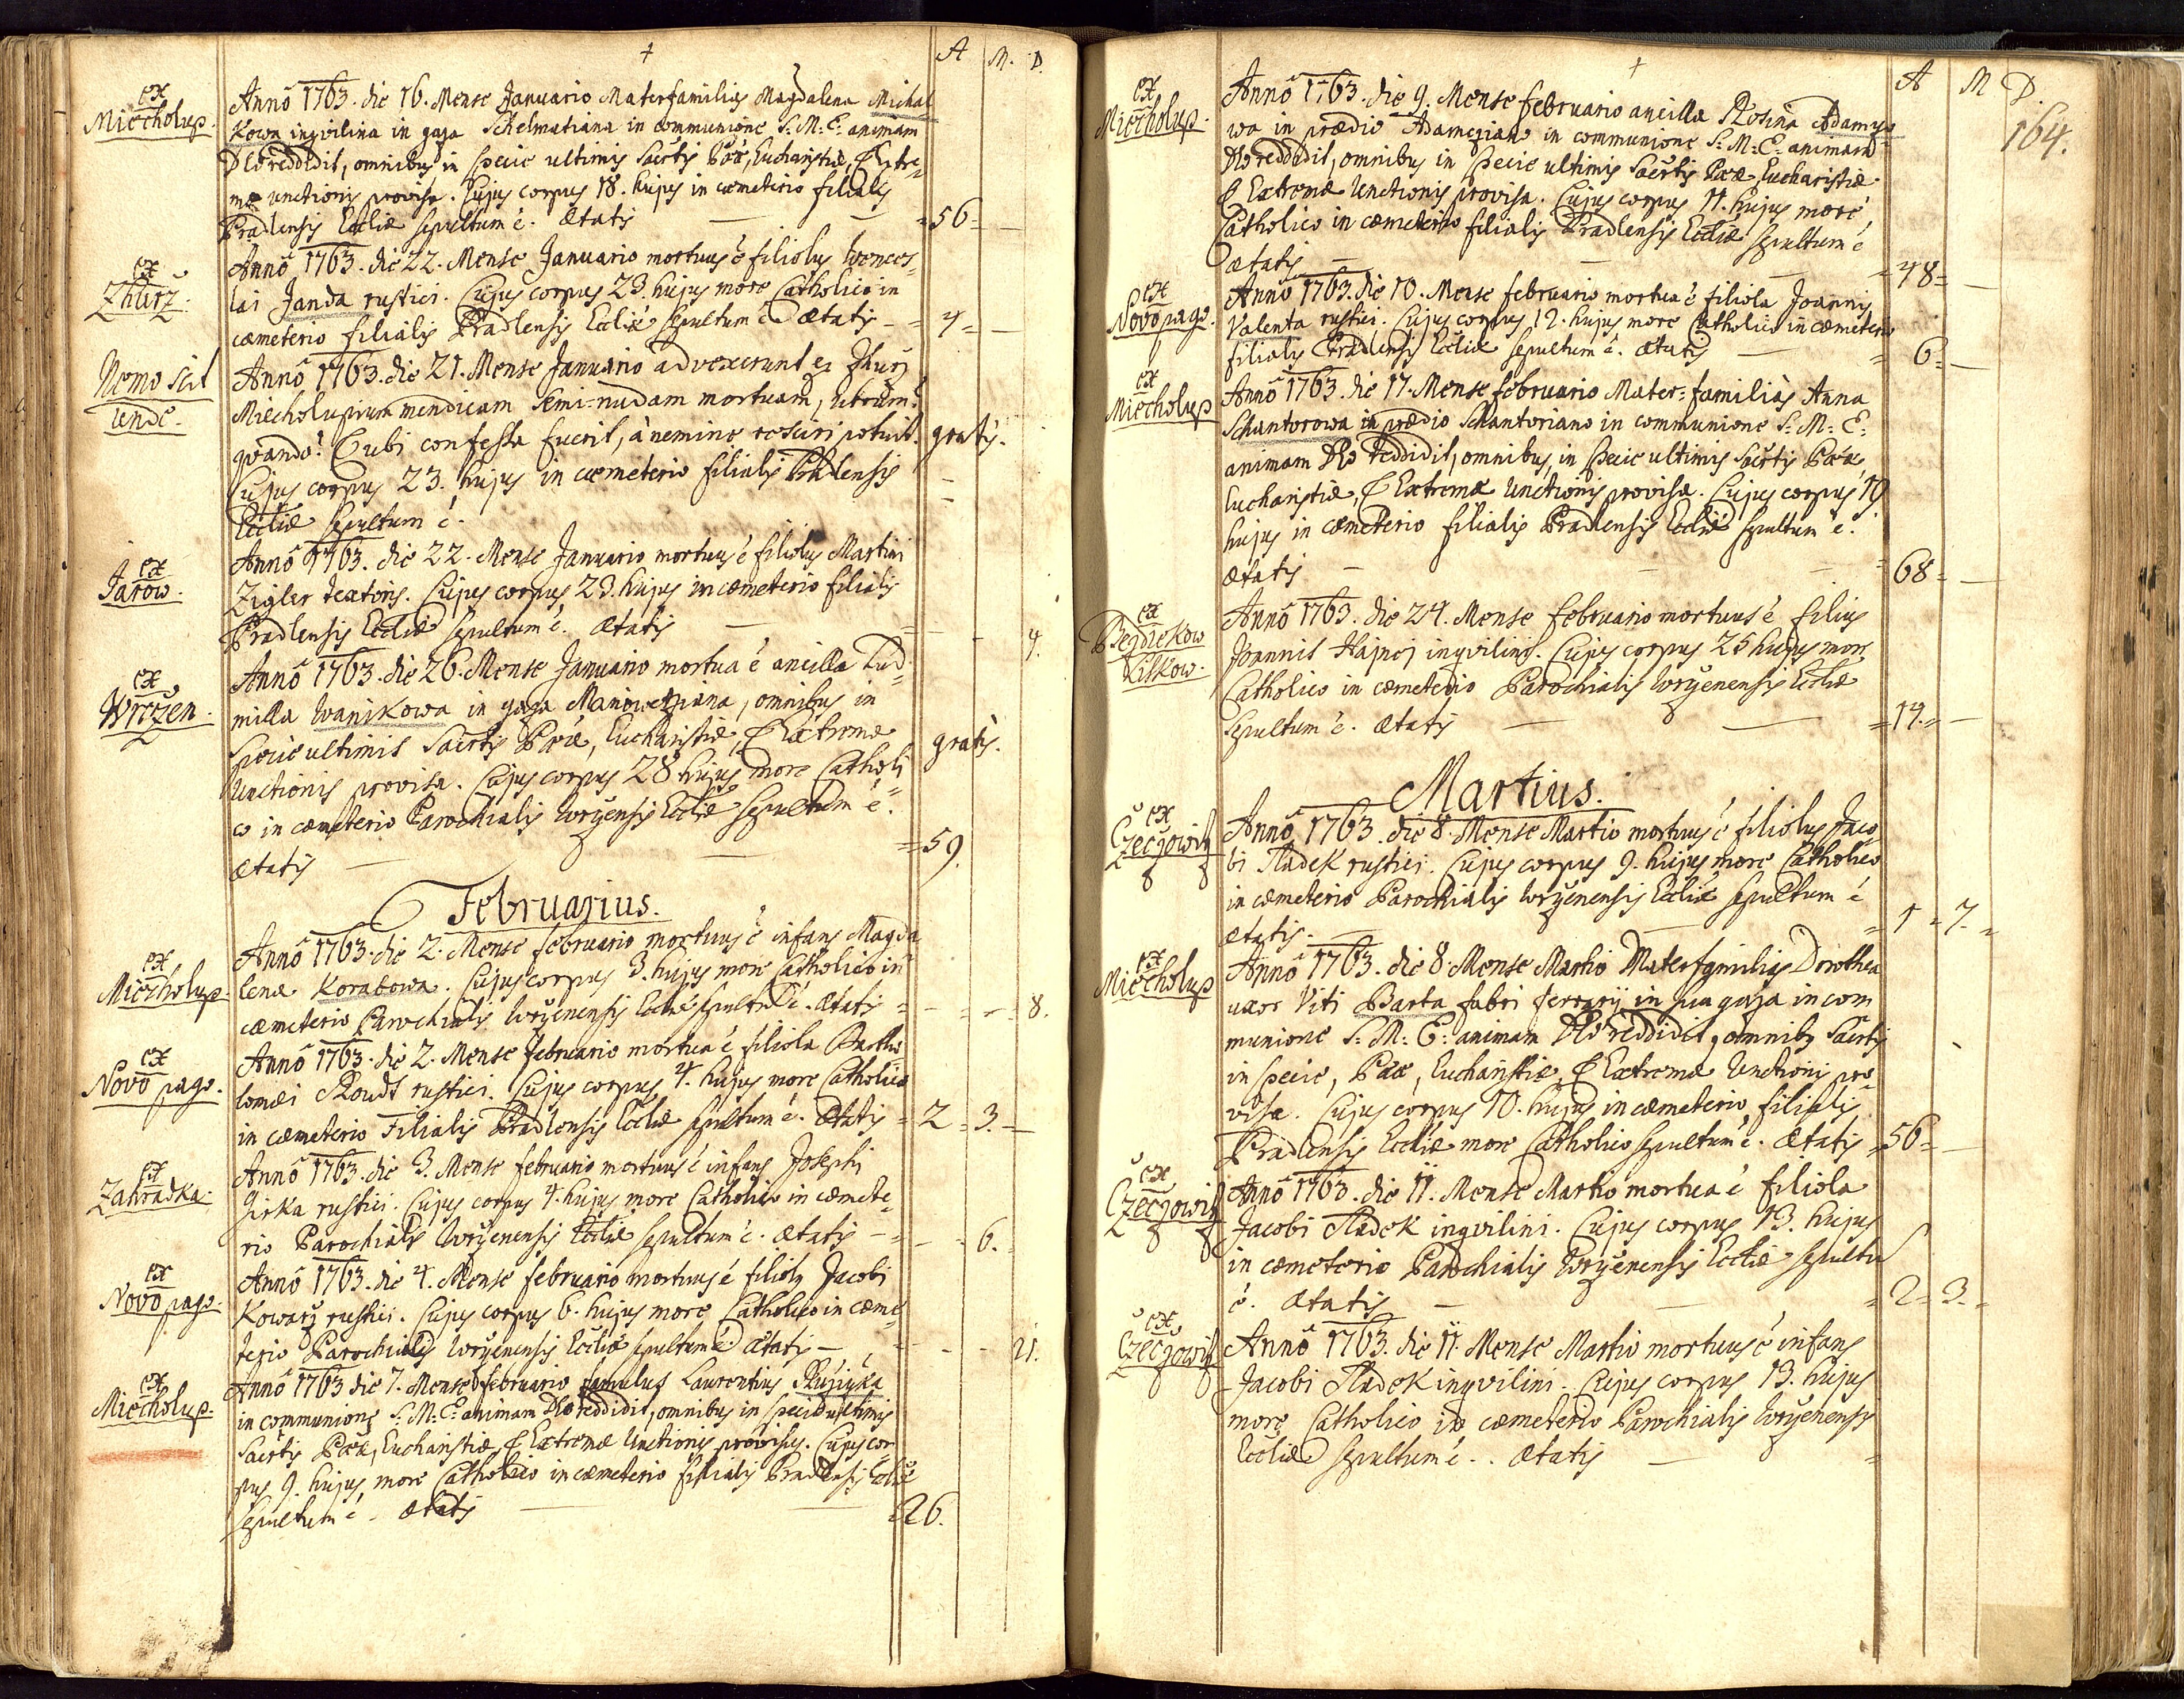 †
A M. D.
ex
Miecholup.
Annô 1763. die 16. Mense Januario Materfamilias Magdalena Michal
kowa inqvilina in gaza Schelmatiana in communione S: M: E: animam
Dẽo reddidit, omnibus in specie ultimis Sacrtis Pœæ, Eucharistiæ, & Extre=
mæ unctionis provisa. Cujus corpus 18. hujus in cœmeterio filialis
Pradlensis Eccliæ sepultum ẽ. Ætatis = 56 =
ex
Zhurz.
Annô 1763. die 22. Mense Januario mortuus ẽ filiolus Wences=
lai Janda rustici. Cujus corpus 23. hujus more Catholico in
cœmeterio filialis Pradlensis Eccliæ sepultum ẽ. Ætatis = 4 =
Nemo scit
unde.
Annô 1763. die 21. Mense Januario advexerunt ex Zhurz
Miecholupium mendicam semi=nudam mortuam, utrum?
qvando? & ubi confessa fuerit, à nemine resciri potuit. gratis.
Cujus corpus 23. hujus in cœmeterio filialis Pradlensis
Eccliæ sepultum ẽ.
ex
Jarow.
Annô 1763. die 22. Mense Januario mortuus ẽ filiolus Martini
Zigler textoris. Cujus corpus 23. hujus in cœmeterio filialis
Pradlensis Eccliæ sepultum ẽ. Ætatis 4.
ex
Wrczen.
Annô 1763. die 26. Mense Januario mortua ẽ ancilla Lud=
milla Wanikowa in gaza Manowetziana, omnibus in
specie ultimis Sacrtis Pœæ, Eucharistiæ, & Extremæ gratis.
Unctionis provisa. Cujus corpus 28 hujus more Catholi=
co in cœmeterio Parochialis Wrżensis Eccliæ sepultum ẽ.
Ætatis = 59.
Februarius.
ex
Miecholup.
Annô 1763. die 2. Mense februario mortuus ẽ infans Magda
lenæ Korabowa. Cujus corpus 3. hujus more Catholico in
cœmeterio Parochialis Wrżenensis Eccliæ sepultũ ẽ. Ætatis = 8.
ex
Novo pago.
Annô 1763. die 2. Mense februario mortua ẽ filiola Bartho=
lomæi Roudt rustici. Cujus corpus 4. hujus more Catholico
in cœmeterio Filialis Pradlensis Eccliæ sepultum ẽ. Ætatis = 2 = 3.
ex
Zahradka.
Annô 1763. die 3. Mense februario mortuus ẽ infans Josephi
Jirka rustici. Cujus corpus 4. hujus more Catholico in cœmete=
rio Parochialis Wrżenensis Eccliæ sepultum ẽ. Ætatis 6.
ex
Novo pago.
Annô 1763. die 4. Mense februario mortuus ẽ filiolus Jacobi
Kowarz rustici. Cujus corpus 6. hujus more Catholico in cœme=
terio Parochialis Wrżenensis Eccliæ sepultum ẽ. Ætatis 21.
ex
Miecholup.
Annô 1763 die 7. Mense februario famulus Laurentius Ruziczka
in communione S: M: E: animam Dẽo reddidit, omnibus in specie ultimis
Sacrtis Pœæ, Eucharistiæ, & Extremæ Unctionis provisus. Cujus cor=
pus 9. hujus more Catholico in cœmeterio filialis Pradlensis Eccliæ
sepultum ẽ. Ætatis 26.
†
A M D
164.
ex
Miecholup.
Annô 1763. die 9. Mense februario ancilla Rosina Adamzo=
wa in prædio Adameziano in communione S: M: E: animam
Dẽo reddidit, omnibus in specie ultimis Sacrtis Pœæ, Eucharistiæ
& Extremæ Unctionis provisa. Cujus corpus 11. hujus more
Catholico in cœmeterio filialis Pradlensis Eccliæ sepultum ẽ
Ætatis = 48 =
ex
Novo pago.
Annô 1763. die 10. Mense februario mortua ẽ filiola Joannis
Valenta rustici. Cujus corpus 12. hujus more Catholico in cœmeterio
filialis Pradlensis Eccliæ sepultum ẽ. Ætatis = 6 =
ex
Miecholup
Annô 1763. die 17. Mense februario Mater=familiâs Anna
Schantorowa in prædio Schantoriano in communione S: M: E:
animam Dẽo reddidit, omnibus in specie ultimis Sacrtis Pœæ,
Eucharistiæ, & Extremæ Unctionis provisa. Cujus corpus 19
hujus in cœmeterio filialis Pradlensis Eccliæ sepultum ẽ.
Ætatis 68 =
ex
Begdiekow
Liskow.
Annô 1763. die 24. Mense februario mortuus ẽ filius
Joannis Hajnej inqvilini. Cujus corpus 25 hujus more
Catholico in cœmeterio Parochialis Wrżenensis Eccliæ
sepultum ẽ. Ætatis = 14. =
Martius.
ex
Czeczowitz
Annô 1763. die 8. Mense Martio mortuus ẽ filiolus Jaco=
bi Sladek rustici. Cujus corpus 9. hujus more Catholico
in cœmeterio Parochialis Wrżenensis Eccliæ sepultum ẽ
Ætatis. = 1 = 7. =
ex
Miecholup
Annô 1763. die 8. Mense Martio Materfamilias Dorothea
uxor Viti Barta fabri ferrarii in sua gaza in com
munione S: M: E: animam Dẽo reddidit, omnibus Sacrtis
in specie, Pœæ, Eucharistiæ, & Extremæ Unctionis pro=
visa. Cujus corpus 10. hujus in cœmeterio filialis
Pradlensis Eccliæ more Catholico sepultum ẽ. Ætatis = 56 =
ex
Czeczowitz
Annô 1763. die 11. Mense Martio mortua ẽ filiola
Jacobi Sladek inqvilini. Cujus corpus 13. hujus
in cœmeterio Parochialis Wrżenensis Eccliæ sepultũ
ẽ. Ætatis = 2 = 3. =
ex
Czeczowitz
Annô 1763. die 11. Mense Martio mortuus ẽ infans
Jacobi Sladek inqvilini. Cujus corpus 13. hujus
more Catholico in cœmeterio Parochialis Wrżenensis
Eccliæ sepultum ẽ. Ætatis